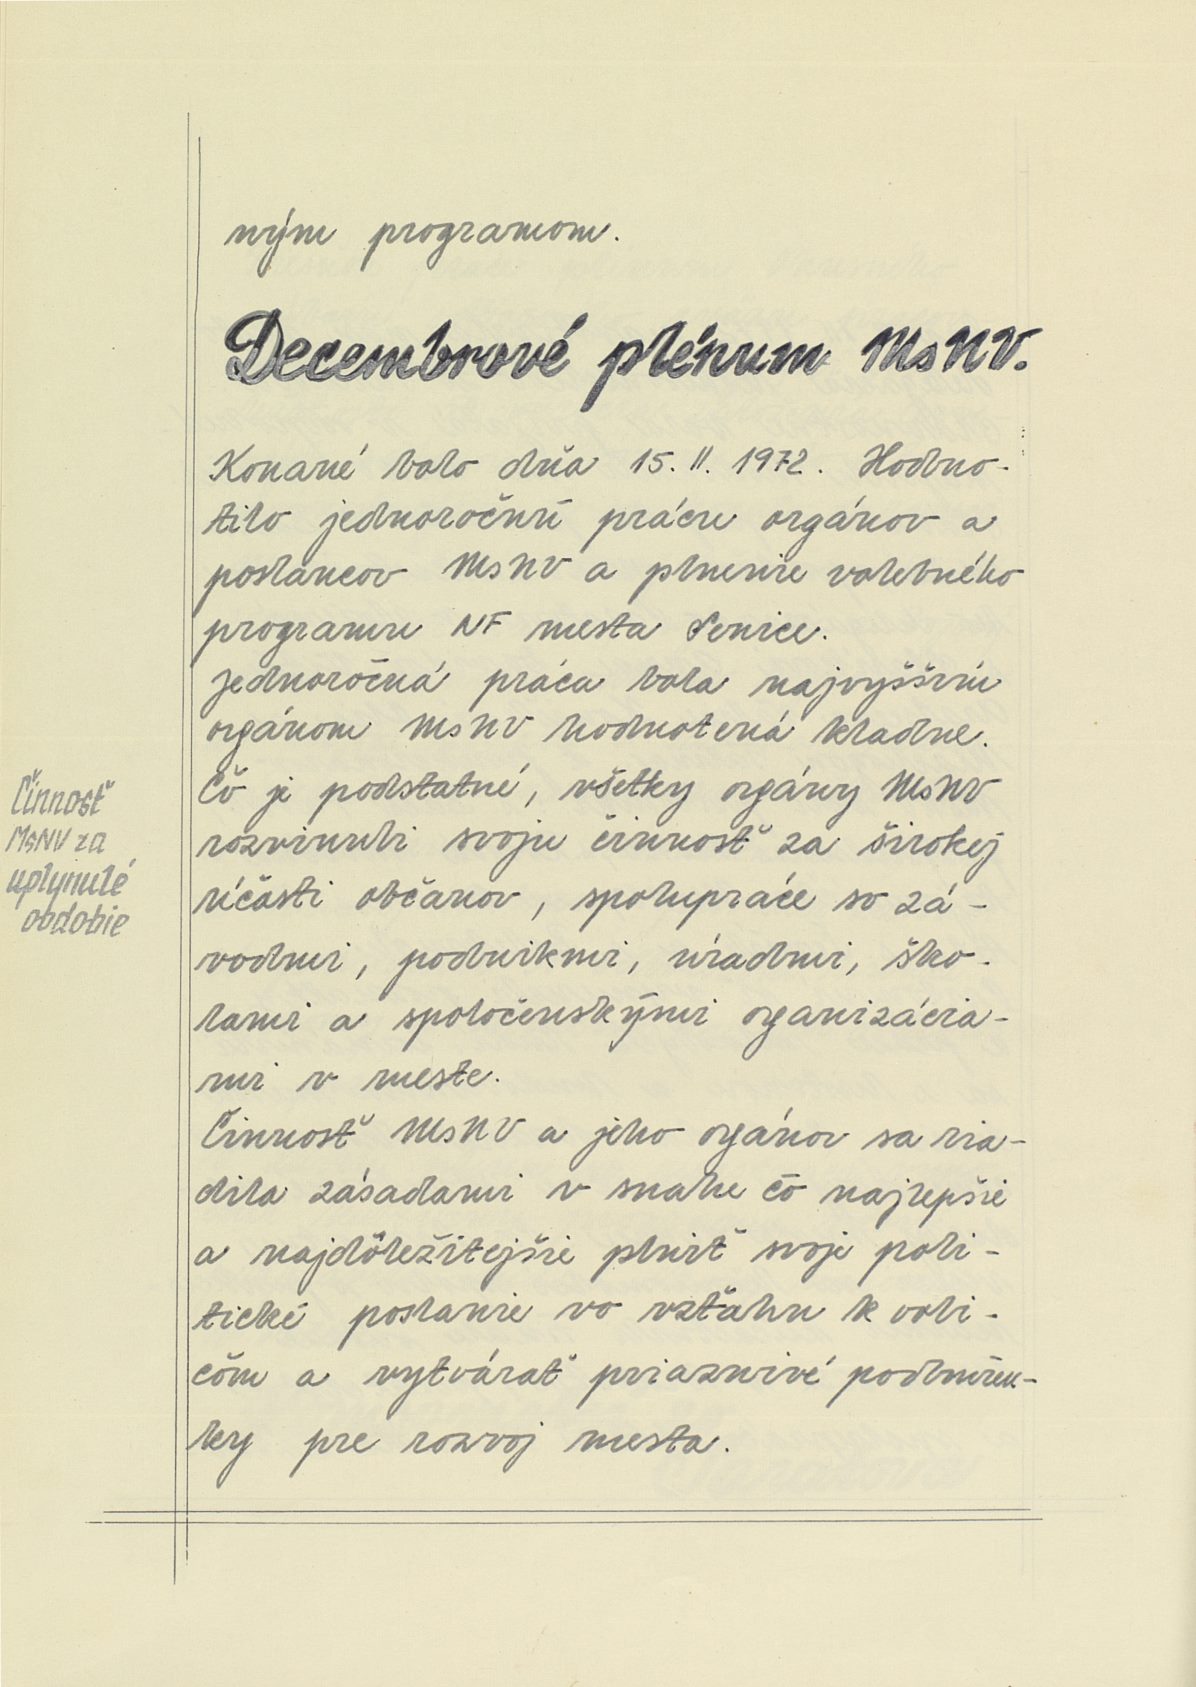 ným programom.
Decembrové plénum MsNV.
Konané bolo dňa 15. II. 1972. Hodno-
tilo jednoročnú prácu orgánov a
poslancov MsNV a plnenie volebného
programu NF mesta Senice.
Jednoročná práca bola najvyšším
orgánom MsNV hodnotená kladne.
Čo je podstatné, všetky orgány MsNV
rozvinuli svoju činnosť za širokej
účasti občanov, spolupráce so zá-
vodmi, podnikmi, úradmi, ško-
lami a spoločenskými organizácia-
mi v meste.
Činnosť MsNV a jeho orgánov sa ria-
dila zásadami v snahe čo najlepšie
a najdôležitejšie plniť svoje poli-
tické poslanie vo vzťahu k voli-
čom a vytvárať priaznivé podmien-
ky pre rozvoj mesta.
Činnosť
MsNV za
uplynulé
obdobie